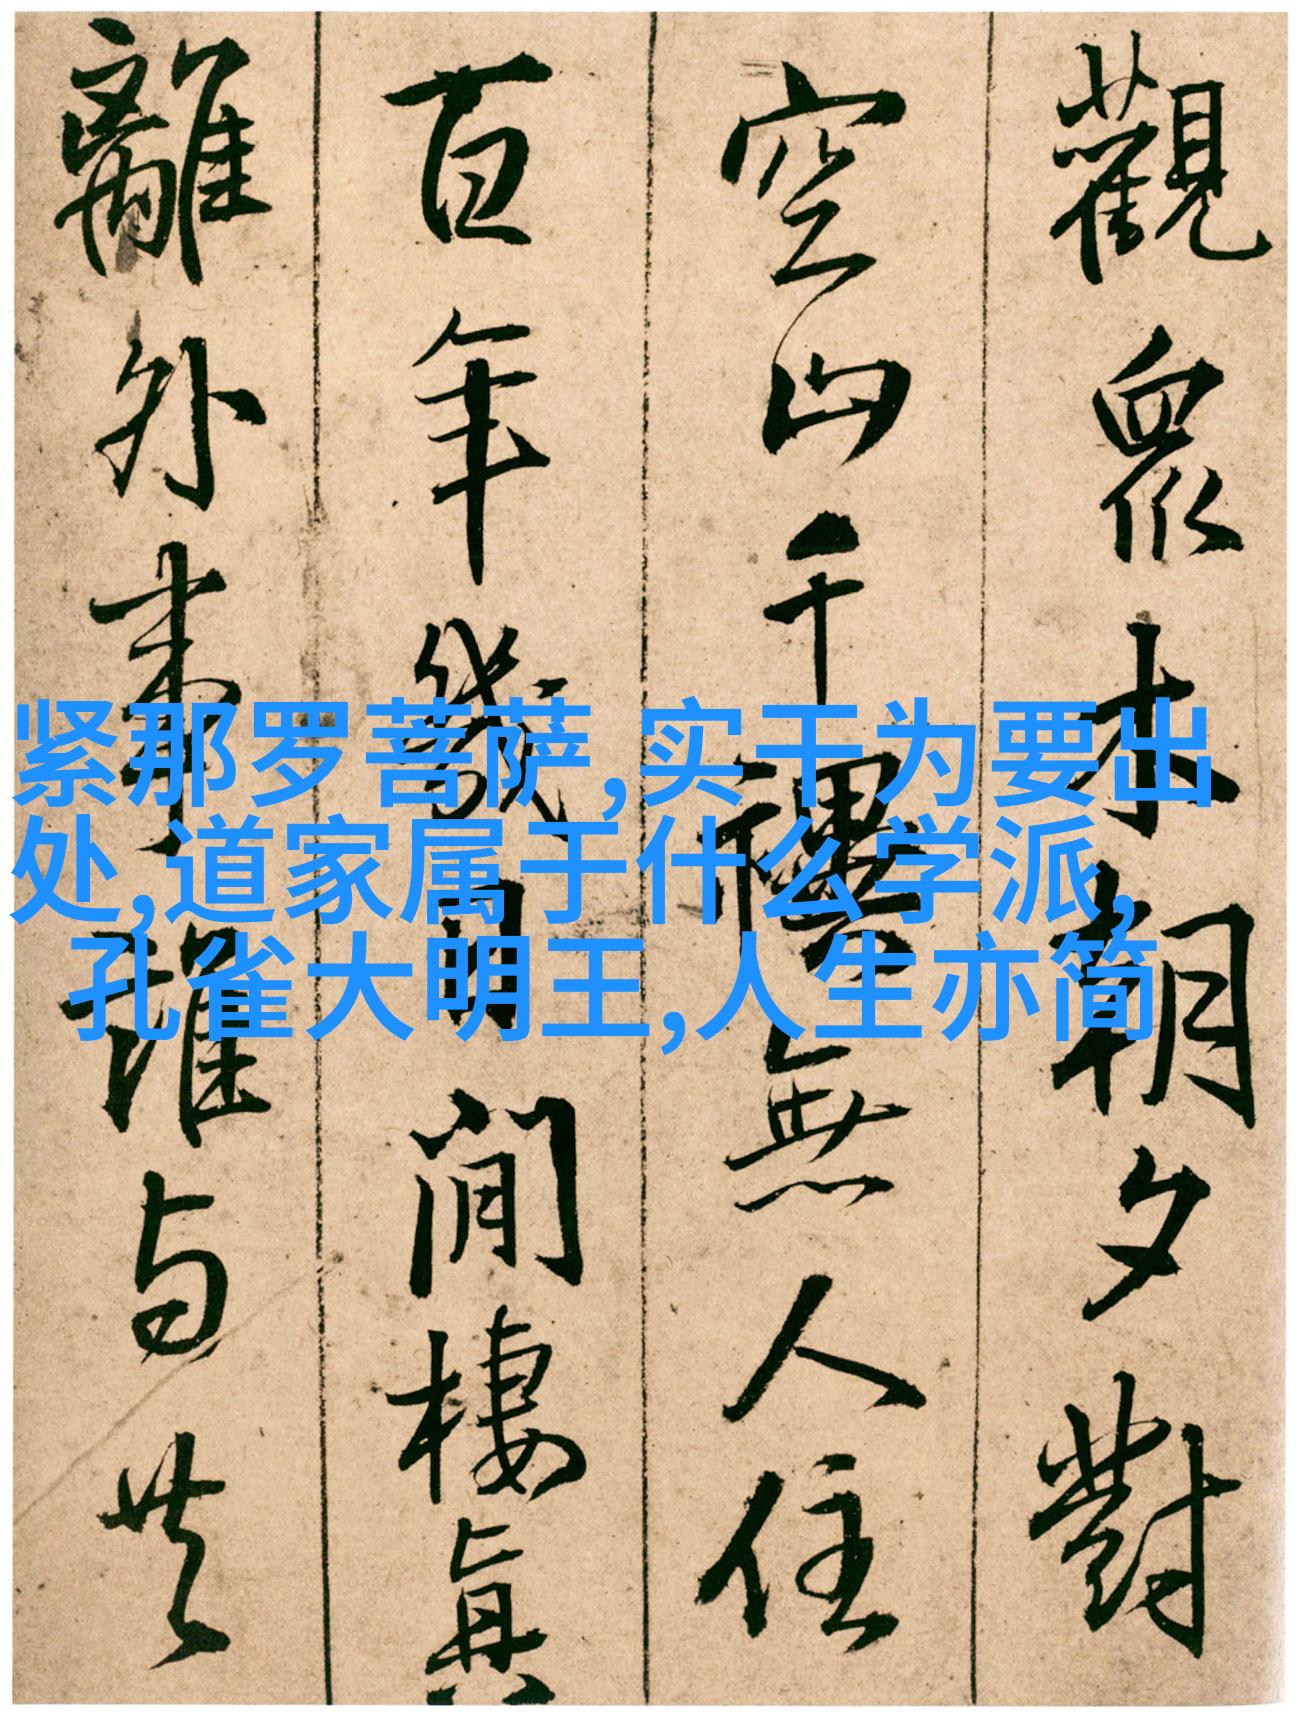 紧那罗菩萨,实干为要出
处,道家属于什么学派,
孔雀大明王,人生亦简
觀眾木朝夕對
空山千禩無人住
百年幾閒棲真
離外事誰与共